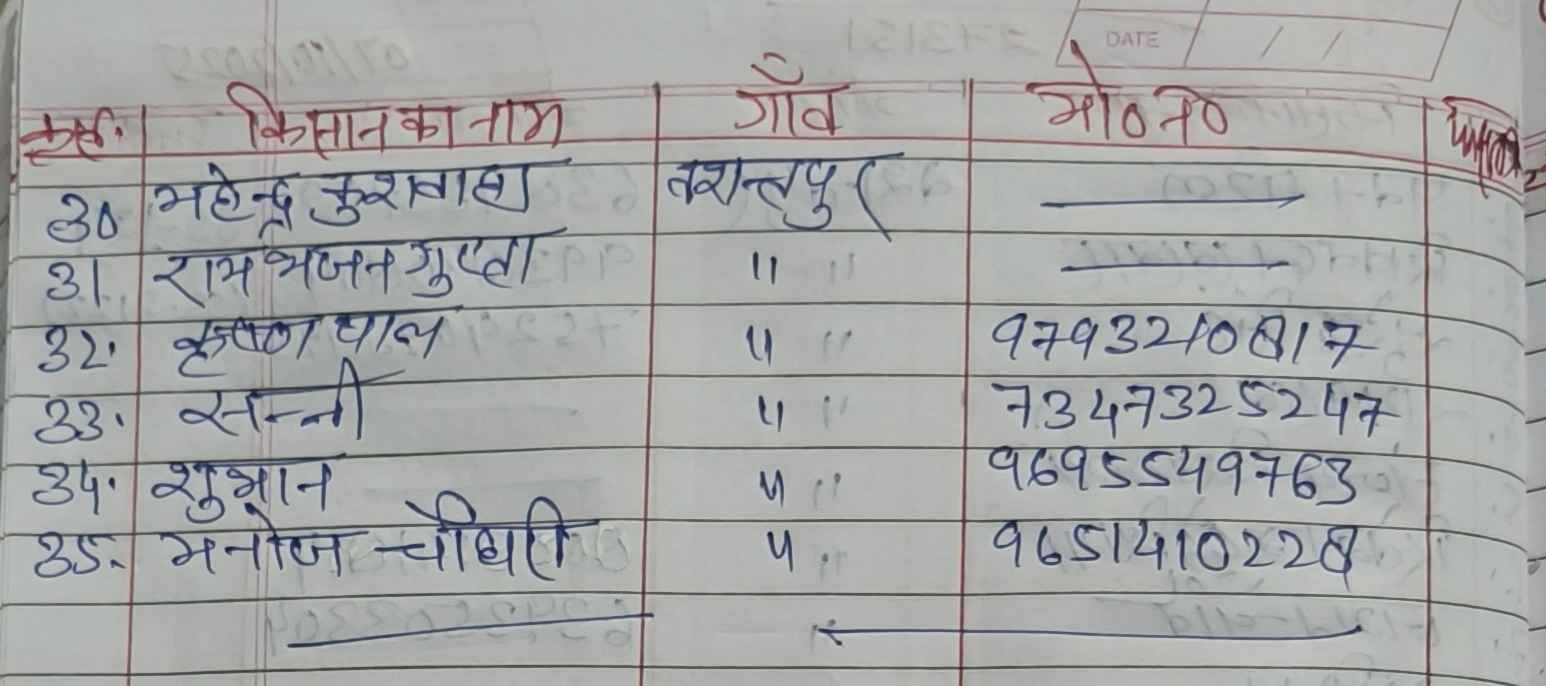 DATE / /
क्र०सं० किसान का नाम गाँव मो० नं०
30 महेन्द्र कुशवाहा वशन्तपुर
31 रामभजन गुप्ता "
32. कृष्णा पाल " 9793210817
33. सन्नी " 7347325247
34. शुभान " 9695549763
35. मनोज चौधरी " 9651410228